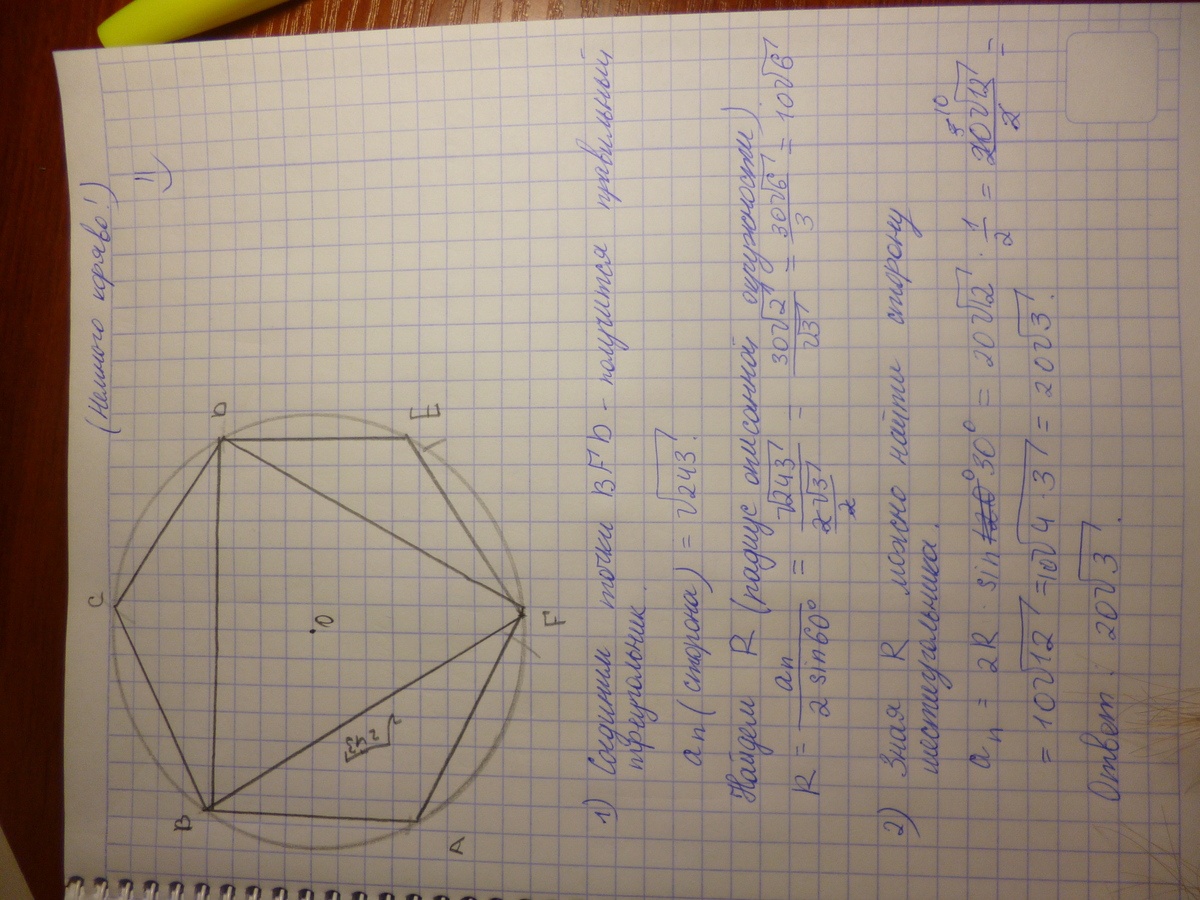 (Немного коряво!)
C
B
D
O
√243
A
E
F
1) Соединим точки BFD - получится правильный
треугольник.
aₙ (сторона) = √243.
Найдем R (радиус описанной окружности)
R = aₙ / 2 sin60° = √243 / (2√3 / 2) = 30√2 / √3 = 30√6 / 3 = 10√6
2) Зная R можно найти сторону
шестиугольника.
aₙ = 2R · sin 30° = 20√12 · 1/2 = 20√12 / 2 =
= 10√12 = 10√4·3 = 20√3.
Ответ: 20√3.